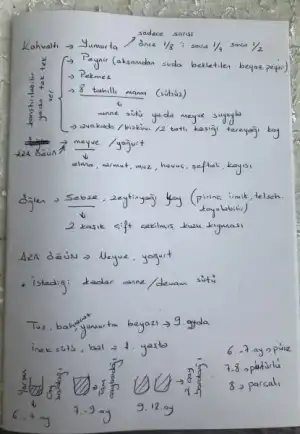 sadece sarısı
Kahvaltı → Yumurta → önce 1/8, sonra 1/4 sonra 1/2
→ Peynir (akşamdan suda bekletilen beyaz peynir)
→ Pekmez
→ 8 tahıllı mama (sütsüz)
anne sütü yada meyve suyuyla
→ avokado / bisküvi / 2 tatlı kaşığı tereyağı koy
karıştırılabilir yada tek tek ver
ARA ÖĞÜN → meyve / yoğurt
elma, armut, muz, havuç, şeftali, kayısı
öğlen → Sebze, zeytinyağı koy (pirinç, irmik,
koyulabilir)
2 kaşık çift çekilmiş kuzu kıyması
ARA ÖĞÜN → Meyve, yoğurt
• istediği kadar anne / devam sütü
Tuz, baharat yumurta beyazı → 9. ayda
inek sütü, bal → 1. yaşta
6-7. ay → püre
7-8 → pütürlü
8 → parçalı
Yarım çay bardağı
Tam çay bardağı
2 çay bardağı
6-7. ay
7-9. ay
9-12. ay